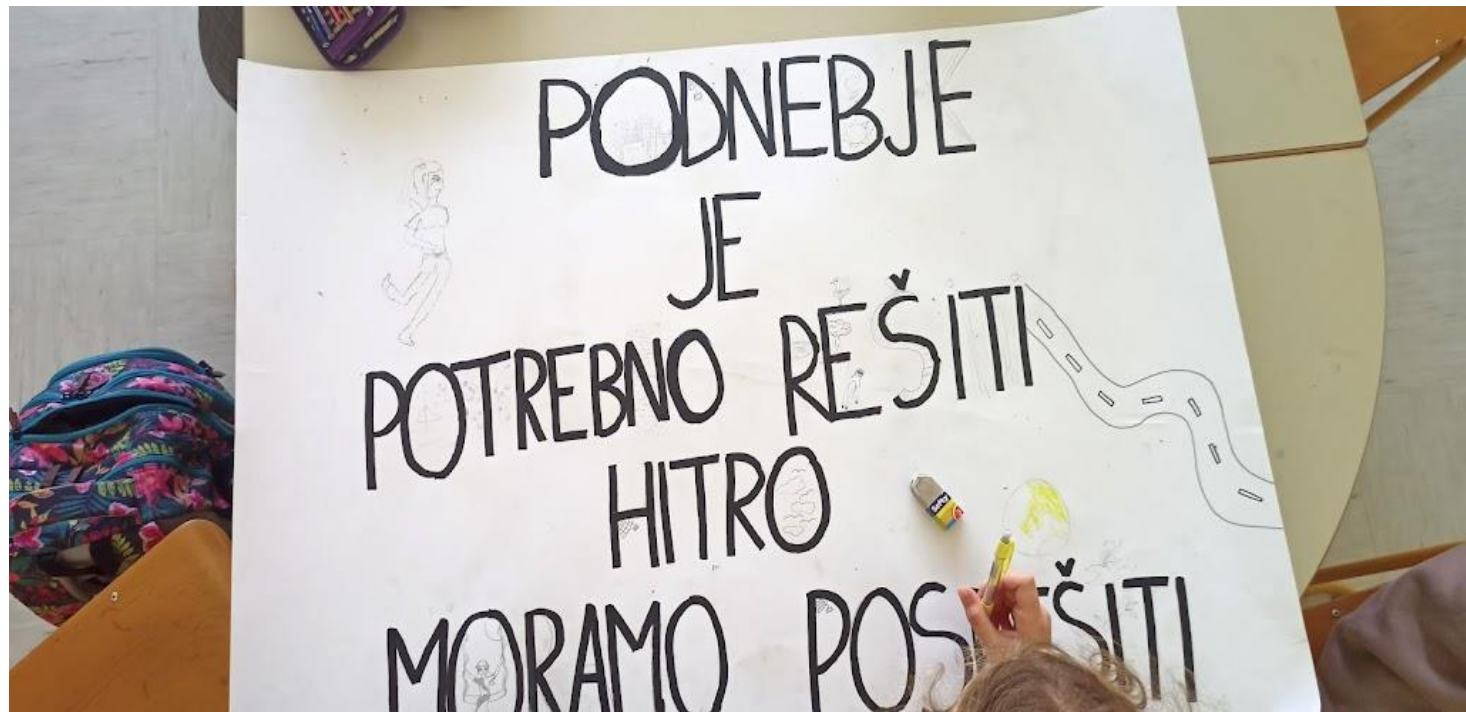 PODNEBJE
JE
POTREBNO REŠITI
HITRO
MORAMO